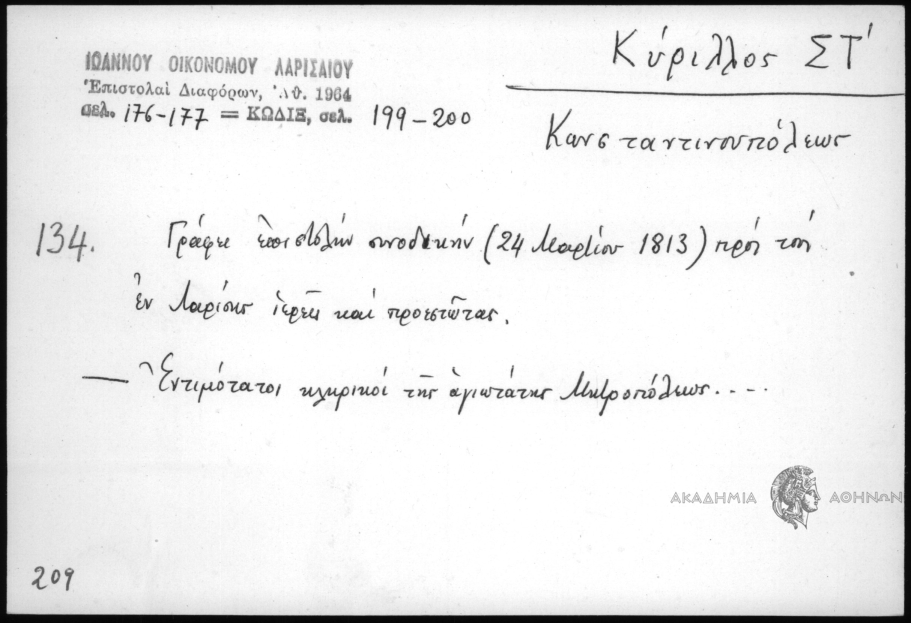 ΙΩΑΝΝΟΥ ΟΙΚΟΝΟΜΟΥ ΛΑΡΙΣΑΙΟΥ
Ἐπιστολαὶ Διαφόρων, Ἀθ. 1964
σελ. 176-177 = ΚΩΔΙΞ, σελ. 199-200
Κύριλλος ΣΤ΄
Κωνσταντινουπόλεως
134. Γράφει ἐπιστολὴν συνοδικήν (24 Μαρτίου 1813) πρὸς τοὺς
ἐν Λαρίσῃ ἱερεῖς καὶ προεστῶτας.
— Ἐντιμότατοι κληρικοί τῆς ἁγιωτάτης Μητροπόλεως....
ΑΚΑΔΗΜΙΑ ΑΘΗΝΩΝ
209